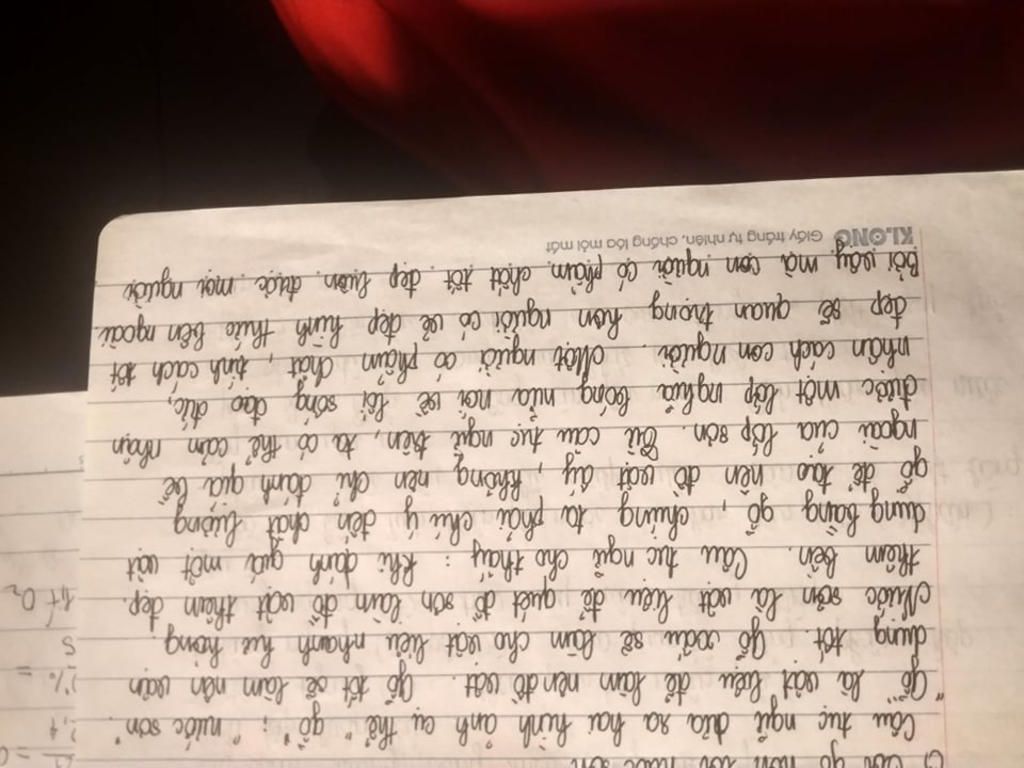 c) Tốt gỗ hơn tốt nước sơn
Câu tục ngữ đưa ra hai hình ảnh cụ thể "gỗ"; "nước sơn".
"Gỗ" là vật liệu để làm nên đồ vật. Gỗ tốt sẽ làm nên vận
dụng tốt. Gỗ xấu sẽ làm cho vật liệu nhanh hư hỏng
Nước sơn là vật liệu để quét đồ sơn làm đồ vật thêm đẹp.
thêm bền. Câu tục ngữ cho thấy: Khi định giá một vật
dụng bằng gỗ, chúng ta phải chú ý đến chất lượng
gỗ để tạo nên đồ vật ấy, không nên chỉ đánh giá bề
ngoài của lớp sơn. Từ câu tục ngữ trên, ta có thể cảm nhận
được một lớp nghĩa bóng nữa nói về lối sống đạo đức,
nhân cách con người. Một người có phẩm chất, tính cách tốt
đẹp sẽ quan trọng hơn người có vẻ đẹp hình thức bên ngoài.
Bởi vậy mà con người có phẩm chất tốt đẹp luôn được mọi người
KLONG Giấy trắng tự nhiên, chống lóa mỏi mắt